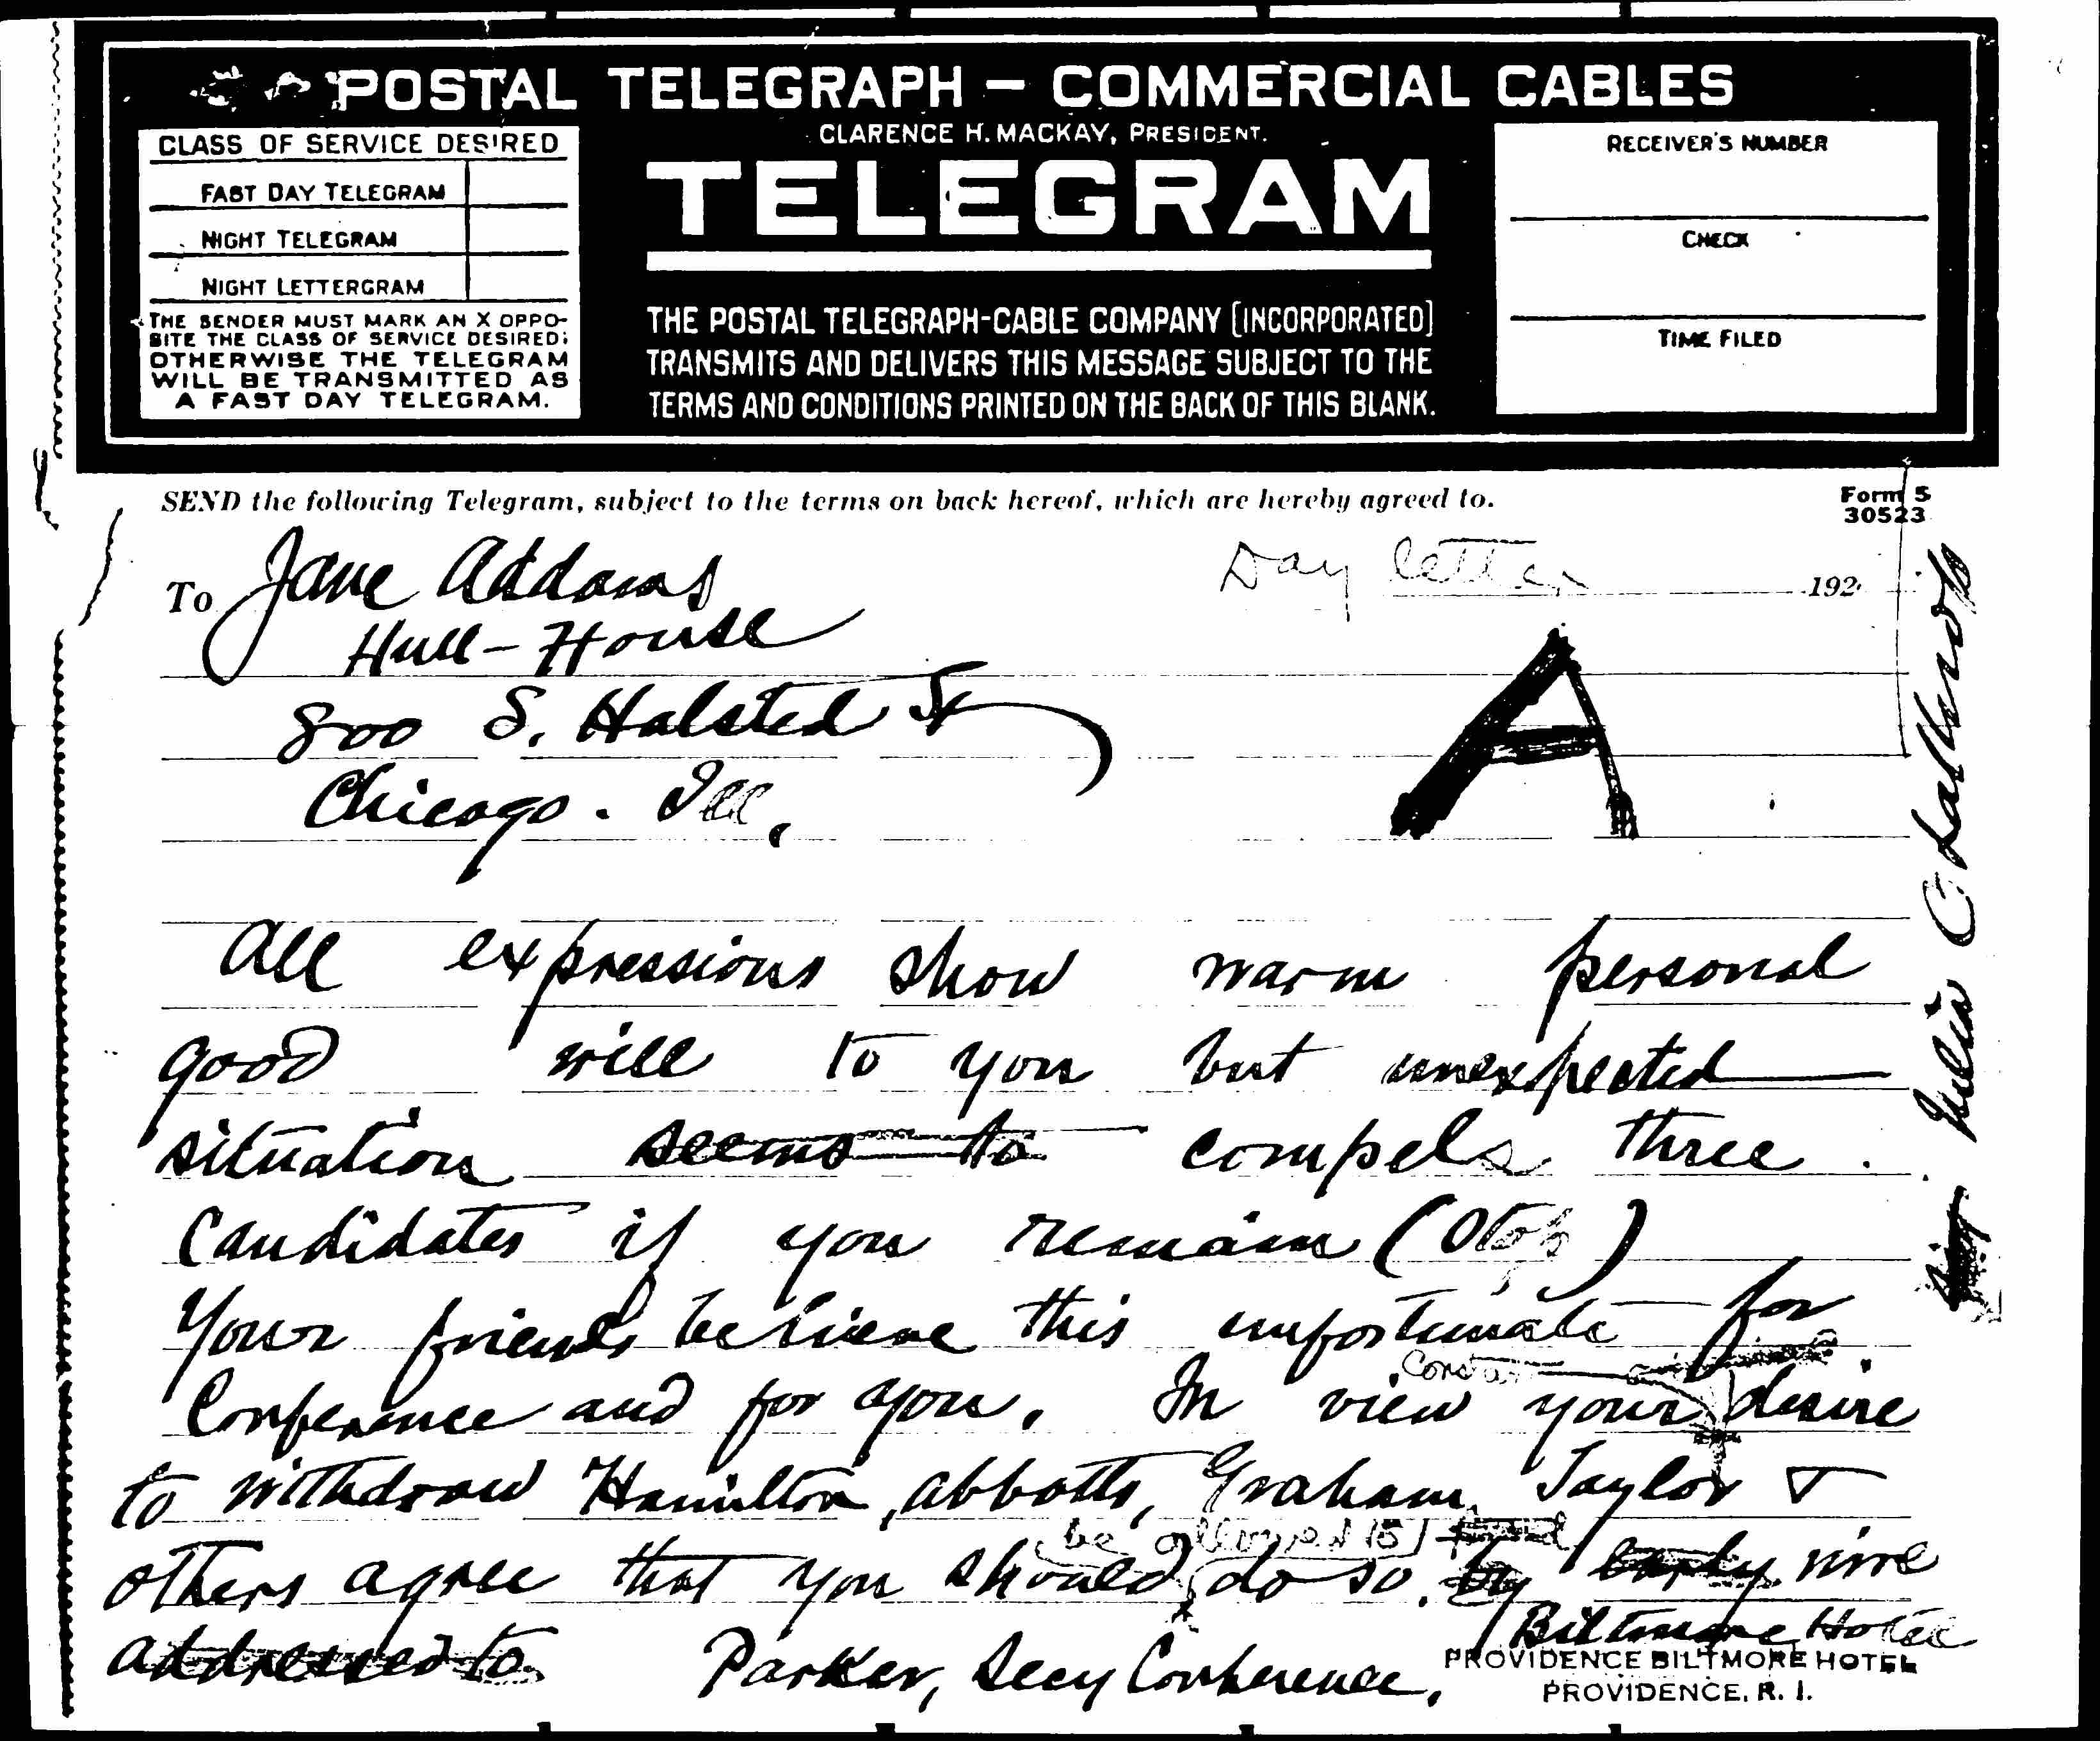 POSTAL TELEGRAPH – COMMERCIAL CABLES
CLARENCE H. MACKAY, PRESIDENT.
TELEGRAM
CLASS OF SERVICE DESIRED
FAST DAY TELEGRAM
NIGHT TELEGRAM
NIGHT LETTERGRAM
THE SENDER MUST MARK AN X OPPO-
SITE THE CLASS OF SERVICE DESIRED;
OTHERWISE THE TELEGRAM
WILL BE TRANSMITTED AS
A FAST DAY TELEGRAM.
THE POSTAL TELEGRAPH-CABLE COMPANY (INCORPORATED)
TRANSMITS AND DELIVERS THIS MESSAGE SUBJECT TO THE
TERMS AND CONDITIONS PRINTED ON THE BACK OF THIS BLANK.
RECEIVER'S NUMBER
CHECK
TIME FILED
SEND the following Telegram, subject to the terms on back hereof, which are hereby agreed to.
Form 5
30523
Day letter 192
To Jane Addams
Hull-House
800 S. Halsted St
Chicago. Ill.
A
All expressions show warm personal
good will to you but unexpected
situation seems to compels three
candidates if you remain (Stop)
Your friends believe this unfortunate for
Conference and for you. In view your desire
to withdraw Hamilton, Abbotts, Graham Taylor &
others agree that you should be allowed to do so. by early wire
addressed to Parker, Secy Conference,
Biltmore Hotel
PROVIDENCE BILTMORE HOTEL
PROVIDENCE, R. I.
Julia C Lathrop